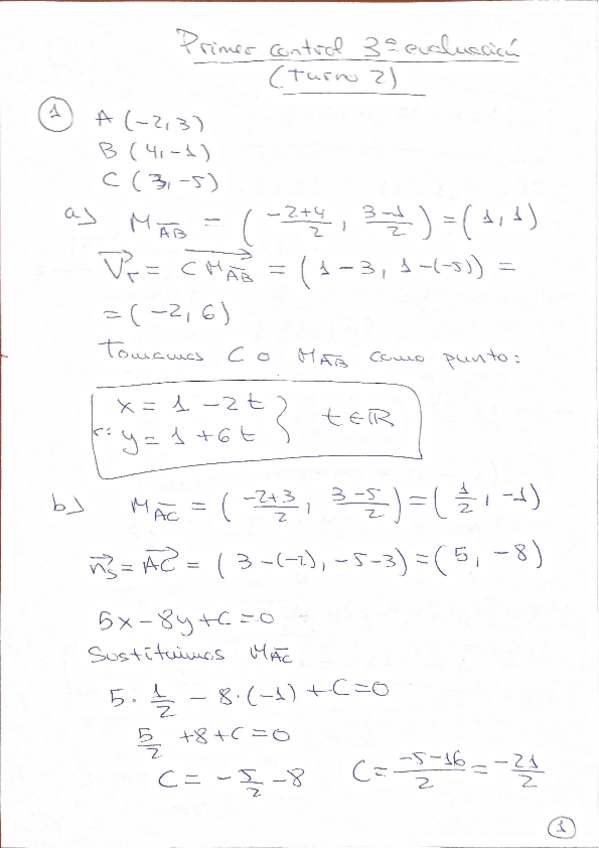 Primer control 3ª evaluación
(Turno 2)
1 A (-2,3)
B (4,-1)
C (3,-5)
a) M_AB = ( (-2+4)/2 , (3-1)/2 ) = (1,1)
V_r = CM_AB = (1-3, 1-(-5)) =
= (-2,6)
Tomamos C o M_AB como punto:
x = 1 - 2t
r: } t∈ℝ
y = 1 + 6t
b) M_AC = ( (-2+3)/2 , (3-5)/2 ) = ( 1/2 , -1)
n_s = AC = (3-(-2), -5-3) = (5, -8)
5x-8y+C=0
Sustituimos M_AC
5· 1/2 - 8·(-1) + C=0
5/2 +8+C=0
C = - 5/2 -8 C = (-5-16)/2 = -21/2
1